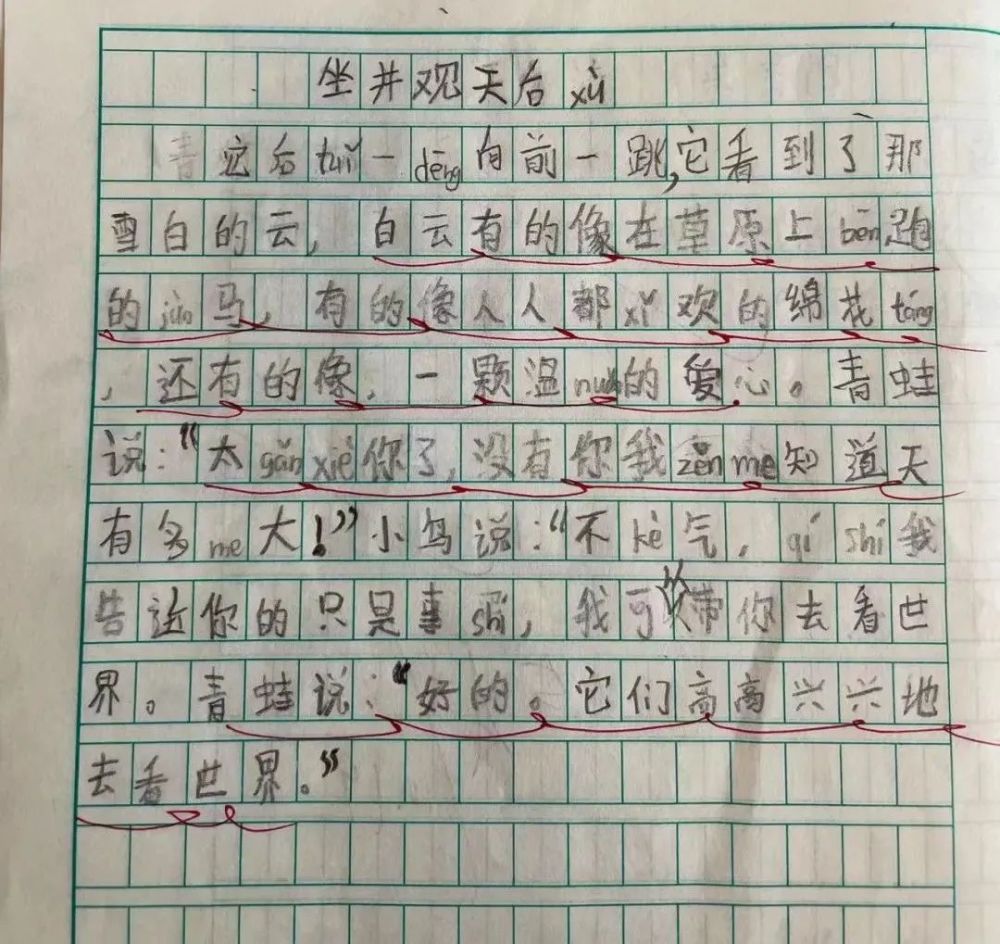 坐井观天后xù
它后tuǐ一dēng向前一跳,它看到了那
雪白的云,白云有的像在草原上bēn跑
的jùn马,有的像人人都xǐ欢的绵花táng
,还有的像,一颗温nuǎn的爱心。青蛙
说:“太gǎnxiè你了,没有你我zěnme知道天
有多me大!”小鸟说:“不kè气,qí shí我
告诉你的只是事shí,我可以带你去看世
界。青蛙说:“好的。它们高高兴兴地
去看世界。”